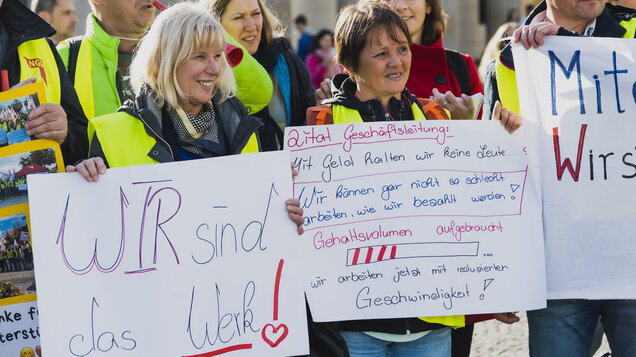 NG
WIR sind
das Werk!
Zitat Geschäftsleitung:
Mit Geld halten wir keine Leute....
Wir können gar nicht so schlecht
arbeiten, wie wir bezahlt werden!
Gehaltsvolumen aufgebraucht
wir arbeiten jetzt mit reduzierter
Geschwindigkeit!
Mit
Wir s
nke fü
rstüt